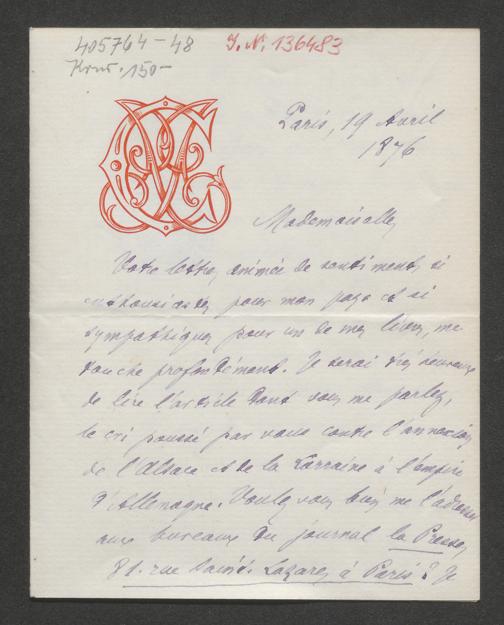 405764-48
J. N. 136483
Kray. 150-
Paris, 19 Avril
1876
Mademoiselle,
Votre lettre, animée de sentiments si
enthousiastes pour mon pays et si
sympathiques pour un de mes livres, me
touche profondément. Je serai très heureux
de lire l'article dont vous me parlez,
le cri poussé par vous contre l'annexion
de l'Alsace et de la Lorraine à l'empire
d'Allemagne. Voulez vous bien me l'adresser
aux bureaux du journal la Presse,
81. rue Saint-Lazare, à Paris? Je